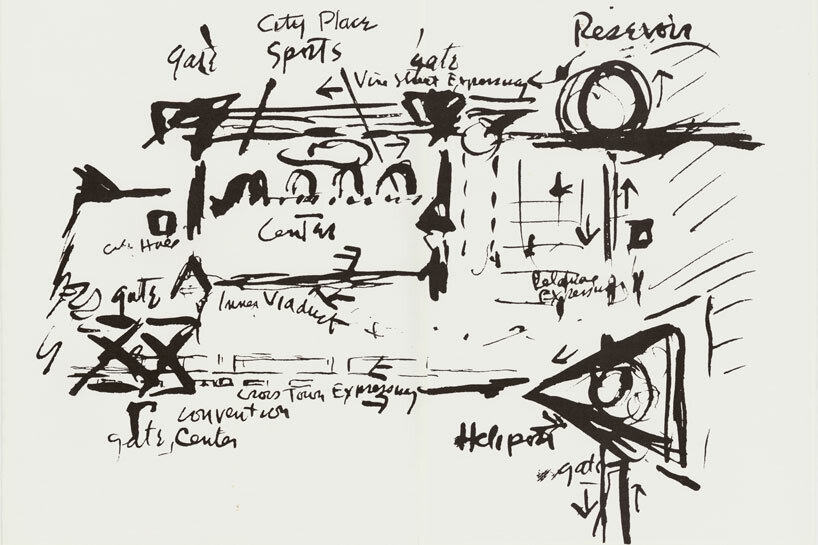 City Place
Sports
Center
gate
gate
Vine Street Expressway
Reservoir
City Hall
gate
Inner Viaduct
Expressway
Cross Town Expressway
convention
Center
gate
Heliport
gate